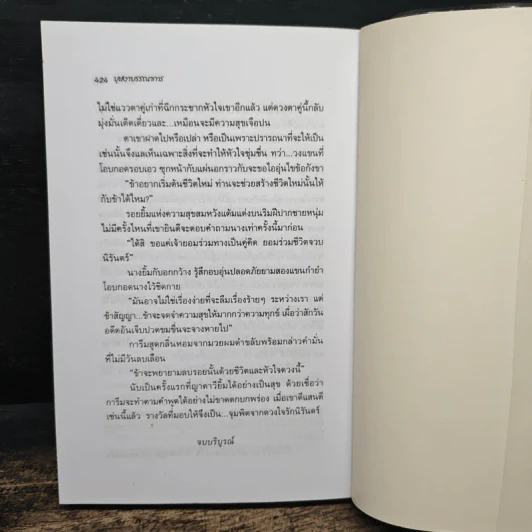 ไม่ใช่แววตาคู่เก่าที่ฉีกกระชากหัวใจเขาอีกแล้ว แต่ดวงตาคู่นี้กลับ
มุ่งมั่นเด็ดเดี่ยวและ...เหมือนจะมีความสุขเจือปน
ตาเขาฝาดไปหรือเปล่า หรือเป็นเพราะปรารถนาที่จะให้เป็น
เช่นนั้นจึงแลเห็นเฉพาะสิ่งที่จะทำให้หัวใจชุ่มชื่น ทว่า...วงแขนที่
โอบกอดรอบเอว ซุกหน้ากับแผ่นอกราวกับจะขอไออุ่นไขข้อกังขา
“ข้าอยากเริ่มต้นชีวิตใหม่ ท่านจะช่วยสร้างชีวิตใหม่นั้นให้
กับข้าได้ไหม?”
รอยยิ้มแห่งความสุขสมหวังแต้มแต่งบนริมฝีปากชายหนุ่ม
ไม่มีครั้งไหนที่เขายินดีจะตอบคำถามนางเท่าครั้งนี้มาก่อน
“ได้สิ ขอแค่เจ้ายอมร่วมทางเป็นคู่คิด ยอมร่วมชีวิตจวบ
นิรันดร์”
นางยิ้มกับอกกว้าง รู้สึกอบอุ่นปลอดภัยยามสองแขนกำยำ
โอบกอดนางไว้ชิดกาย
“มันอาจไม่ใช่เรื่องง่ายที่จะลืมเรื่องร้ายๆ ระหว่างเรา แต่
ข้าสัญญา...ข้าจะจดจำความสุขให้มากกว่าความทุกข์ เผื่อว่าสักวัน
อดีตอันเจ็บปวดขมขื่นจะจางหายไป”
การีมสูดกลิ่นหอมจากมวยผมดำขลับพร้อมกล่าวคำมั่น
ที่ไม่มีวันลบเลือน
“ข้าจะพยายามลบรอยนั้นด้วยชีวิตและหัวใจดวงนี้”
นับเป็นครั้งแรกที่ญาดาวียิ้มได้อย่างเป็นสุข ด้วยเชื่อว่า
การีมจะทำตามคำพูดได้อย่างไม่ขาดตกบกพร่อง เมื่อเขาดีแสนดี
เช่นนี้แล้ว รางวัลที่มอบให้จึงเป็น...จุมพิตจากดวงใจรักนิรันดร์
จบบริบูรณ์